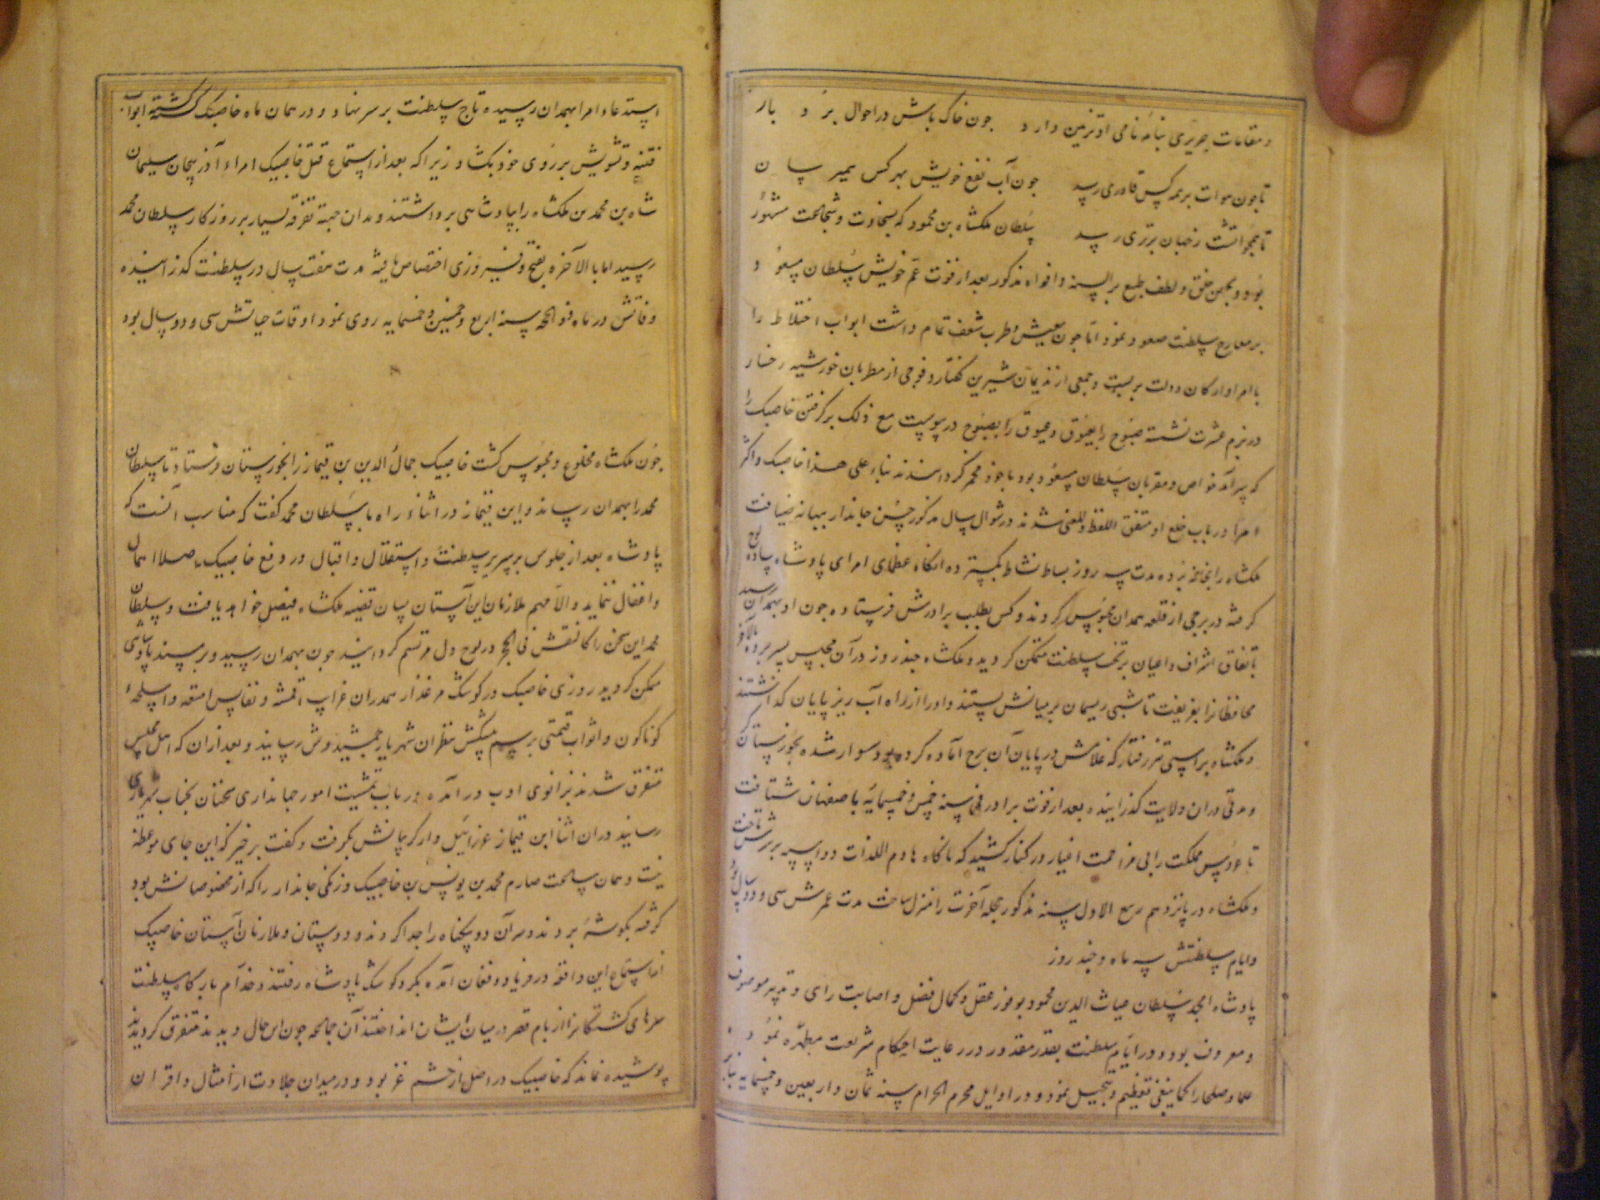 و مقامات حریری بنامهٔ نامی او تزیین دارد چون خاک باش در احوال بر د بار
تا چون هوات بر همه کس قادری رسد چون آب نفع خویش بهر کس میر سان
تا همچو آتشت ز جهان برتری رسد سلطان ملکشاه بن محمود که بسخاوت و شجاعت مشهور
بود و بحسن خلق و لطف طبع بر السنه و افواه مذکور بعد از فوت عم خویش سلطان مسعود
بر معارج سلطنت صعود نمود اما چون بعیش و طرب شعف تمام داشت ابواب اختلاط را
با امرا و ارکان دولت بر بست و جمعی از ندیمان شیرین گفتار و فوجی از مطربان خورشید رخسار
در بزم عشرت نشسته صبوح را بغبوق و غبوق را بصبوح در پیوست مع ذلک بر گرفتن خاصبک را
که سرآمد خواص و مقربان سلطان مسعود بود با خود مخمر گردانیدند بناء علی هذا خاصبک و اکثر
امرا در باب خلع او متفق اللفظ و المعنی شدند در شوال سال مذکور حسن جاندار ببهانه ضیافت
ملکشاه را بخانه برده مدت سه روز بساط نشاط بگسترده آنگاه عظمای امرای پادشاه ساده لوح
گرفته در برجی از قلعه همدان محبوس کردند و کس بطلب برادرش فرستاده چون او بهمدان رسید
باتفاق اشراف و اعیان بر تخت سلطنت متمکن گردید و ملکشاه چند روز در آن مجلس بسر برده بالآخر
محافظانرا بفریفت تا شبی ریسمان بر میانش بستند و او را از راه آب ریز پایان گذاشتند
و ملکشاه بر اسبی تیز رفتار که غلامش در پایان آن برج آماده کرده بود سوار شده بخوزستان گ
و مدتی در ان ولایت گذرانیده بعد از فوت برادر فی سنه خمس و خمسمایه باصفهان شتافت
تا عروس مملکت را بی مزاحمت اغیار در کنار کشید که ناگاه هادم اللذات دو اسبه بر سرش تاخت
و ملکشاه در پانزدهم ربیع الاول سنه مذکور حجلهٔ آخرت را منزل ساخت مدت عمرش سی و دو سال بود
و ایام سلطنتش سه ماه و چند روز
پادشاه امجد سلطان غیاث الدین محمود بوفور عقل و کمال فضل و اصابت رای و تدبیر موصوف
و معروف بود و در ایام سلطنت بقدر مقدور در رعایت احکام شریعت مطهره نمود
علما و صلحا را کما ینبغی تعظیم و تبجیل نمود و در اوایل محرم الحرام سنه ثمان و اربعین و خمسمایه بنابر
استدعاء امرا بهمدان رسیده تاج سلطنت بر سر نهاد و در همان ماه خاصبک کشته ابواب
فتنه و تشویش بر روی خود بکشاد زیرا که بعد از استماع قتل خاصبیک امراء آذربیجان سلیمان
شاه بن محمد بن ملکشاه را بپادشاهی برداشتند و بدان جهة تفرقه بسیار بر روزکار سلطان محمد
رسید اما بالاخره بفتح و فیروزی اختصاص یافته مدت هفت سال در سلطنت گذرانیده
وفاتش در ماه ذو الحجه سنه اربع و خمسین و خمسمایه روی نمود اوقات حیاتش سی و دو سال بود
چون ملکشاه مخلوع و محبوس گشت خاصبیک جمال الدین بن قیماز را بخوزستان فرستاد تا سلطان
محمد را بهمدان رساند و این قیماز در اثناء راه با سلطان محمد گفت که مناسب آنست که
پادشاه بعد از جلوس بر سریر سلطنت و استقلال و اقبال در دفع خاصبیک اصلا اهمال
و اغفال ننماید و الا مهم ملازمان این آستان بسان قضیه ملکشاه فیصل خواهد یافت و سلطان
محمد این سخن را کالنقش فی الحجر در لوح دل مرتسم گردانید چون بهمدان رسید و بر مسند پادشاهی
متمکن گردید روزی خاصبک در کوشک مرغذار همدان غرایب اقمشه و نفایس امتعه و اسلحهٔ
گوناگون و اثواب قیمتی برسم پیشکش منظران شهریار جمشیدوش رسانید و بعد ازان که اهل مجلس
متفرق شدند بزانوی ادب در آمده در باب تمشیت امور جهانداری سخنان بجناب شهریاری
رسانید دران اثنا ابن قیماز عزرائیل وار گریبانش بگرفت و گفت برخیز که این جای موعظه
نیست و همان ساعت صارم محمد بن یونس بن خاصبیک و زنگی جاندار را که از مخصوصانش بود
گرفته بگوشهٔ بردند و سر آن دو بیگناه را جدا کردند و دوستان و ملازمان آستان خاصبک
از استماع این واقعه در فریاد و فغان آمده بگرد کوشک پادشاه رفتند و خدام بارگاه سلطنت
سرهای کشتگانرا از بام قصر در میان ایشان انداختند آن جماعه چون این حال دیدند متفرق گردیدند
پوشیده نماند که خاصبیک در اصل از حشم غز بود و در میدان جلادت از امثال و اقران